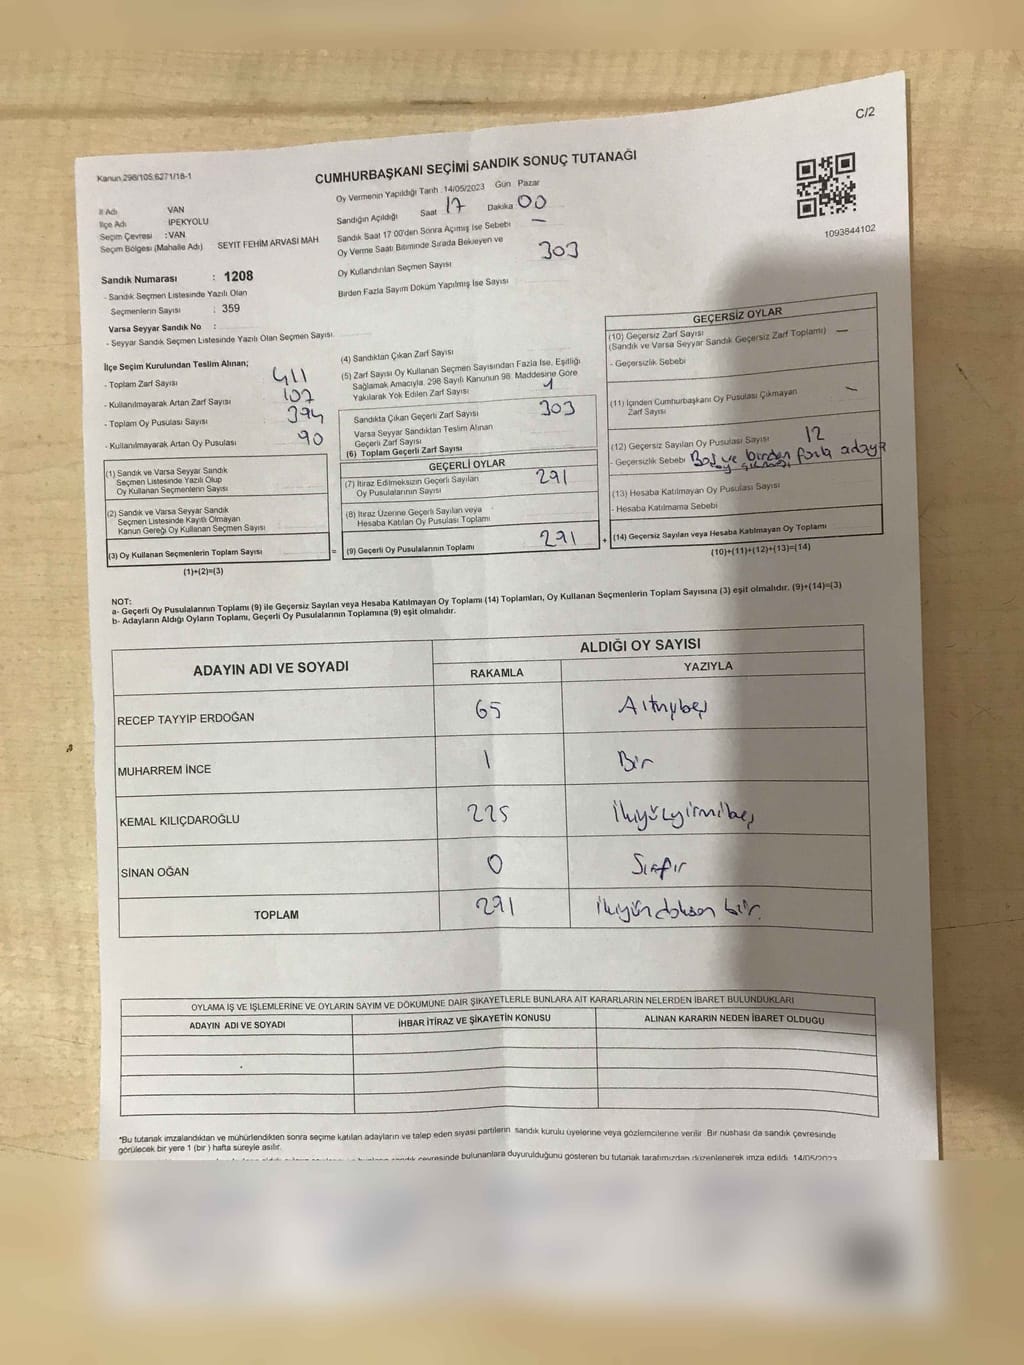 C/2
Kanun 298/105,6271/18-1
CUMHURBAŞKANI SEÇİMİ SANDIK SONUÇ TUTANAĞI
1093844102
İl Adı VAN
İlçe Adı İPEKYOLU
Seçim Çevresi :VAN
Seçim Bölgesi (Mahalle Adı) SEYİT FEHİM ARVASİ MAH
Sandık Numarası : 1208
- Sandık Seçmen Listesinde Yazılı Olan
Seçmenlerin Sayısı : 359
Varsa Seyyar Sandık No :
- Seyyar Sandık Seçmen Listesinde Yazılı Olan Seçmen Sayısı
Oy Vermenin Yapıldığı Tarih 14/05/2023 Gün Pazar
Sandığın Açıldığı Saat 17 Dakika 00
Sandık Saat 17 00'den Sonra Açımış İse Sebebi —
Oy Verme Saati Bitiminde Sırada Bekleyen ve
Oy Kullandırılan Seçmen Sayısı 303
Birden Fazla Sayım Döküm Yapılmış İse Sayısı
İlçe Seçim Kurulundan Teslim Alınan;
- Toplam Zarf Sayısı 411
- Kullanılmayarak Artan Zarf Sayısı 107
- Toplam Oy Pusulası Sayısı 394
- Kullanılmayarak Artan Oy Pusulası 90
(1) Sandık ve Varsa Seyyar Sandık
Seçmen Listesinde Yazılı Olup
Oy Kullanan Seçmenlerin Sayısı
(2) Sandık ve Varsa Seyyar Sandık
Seçmen Listesinde Kayıtlı Olmayan
Kanun Gereği Oy Kullanan Seçmen Sayısı
(3) Oy Kullanan Seçmenlerin Toplam Sayısı
(1)+(2)=(3)
(4) Sandıktan Çıkan Zarf Sayısı
(5) Zarf Sayısı Oy Kullanan Seçmen Sayısından Fazla İse, Eşitliği
Sağlamak Amacıyla, 298 Sayılı Kanunun 98. Maddesine Göre
Yakılarak Yok Edilen Zarf Sayısı 1
Sandıkta Çıkan Geçerli Zarf Sayısı 303
Varsa Seyyar Sandıktan Teslim Alınan
Geçerli Zarf Sayısı
(6) Toplam Geçerli Zarf Sayısı
GEÇERLİ OYLAR
(7) İtiraz Edilmeksizin Geçerli Sayılan
Oy Pusulasının Sayısı 291
(8) İtiraz Üzerine Geçerli Sayılan veya
Hesaba Katılan Oy Pusulası Toplamı
= (9) Geçerli Oy Pusulalarının Toplamı 291
GEÇERSİZ OYLAR
(10) Geçersiz Zarf Sayısı
(Sandık ve Varsa Seyyar Sandık Geçersiz Zarf Toplamı) —
- Geçersizlik Sebebi
(11) İçinden Cumhurbaşkanı Oy Pusulası Çıkmayan
Zarf Sayısı —
(12) Geçersiz Sayılan Oy Pusulası Sayısı 12
- Geçersizlik Sebebi Boş ve birden fazla adaya
(13) Hesaba Katılmayan Oy Pusulası Sayısı
- Hesaba Katılmama Sebebi
+ (14) Geçersiz Sayılan veya Hesaba Katılmayan Oy Toplamı
(10)+(11)+(12)+(13)=(14)
NOT:
a- Geçerli Oy Pusulalarının Toplamı (9) ile Geçersiz Sayılan veya Hesaba Katılmayan Oy Toplamı (14) Toplamları, Oy Kullanan Seçmenlerin Toplam Sayısına (3) eşit olmalıdır. (9)+(14)=(3)
b- Adayların Aldığı Oyların Toplamı, Geçerli Oy Pusulalarının Toplamına (9) eşit olmalıdır.
ADAYIN ADI VE SOYADI ALDIĞI OY SAYISI
RAKAMLA YAZIYLA
RECEP TAYYİP ERDOĞAN 65 Altmışbeş
MUHARREM İNCE 1 Bir
KEMAL KILIÇDAROĞLU 225 İkiyüzyirmibeş
SİNAN OĞAN 0 Sıfır
TOPLAM 291 İkiyüz doksan bir
OYLAMA İŞ VE İŞLEMLERİNE VE OYLARIN SAYIM VE DÖKÜMÜNE DAİR ŞİKAYETLERLE BUNLARA AİT KARARLARIN NELERDEN İBARET BULUNDUKLARI
ADAYIN ADI VE SOYADI İHBAR İTİRAZ VE ŞİKAYETİN KONUSU ALINAN KARARIN NEDEN İBARET OLDUĞU
*Bu tutanak imzalandıktan ve mühürlendikten sonra seçime katılan adayların ve talep eden siyasi partilerin sandık kurulu üyelerine veya gözlemcilerine verilir Bir nüshası da sandık çevresinde
görülecek bir yere 1 (bir) hafta süreyle asılır.
çevresinde bulunanlara duyurulduğunu gösteren bu tutanak tarafımızdan düzenlenerek imza edildi 14/05/2023